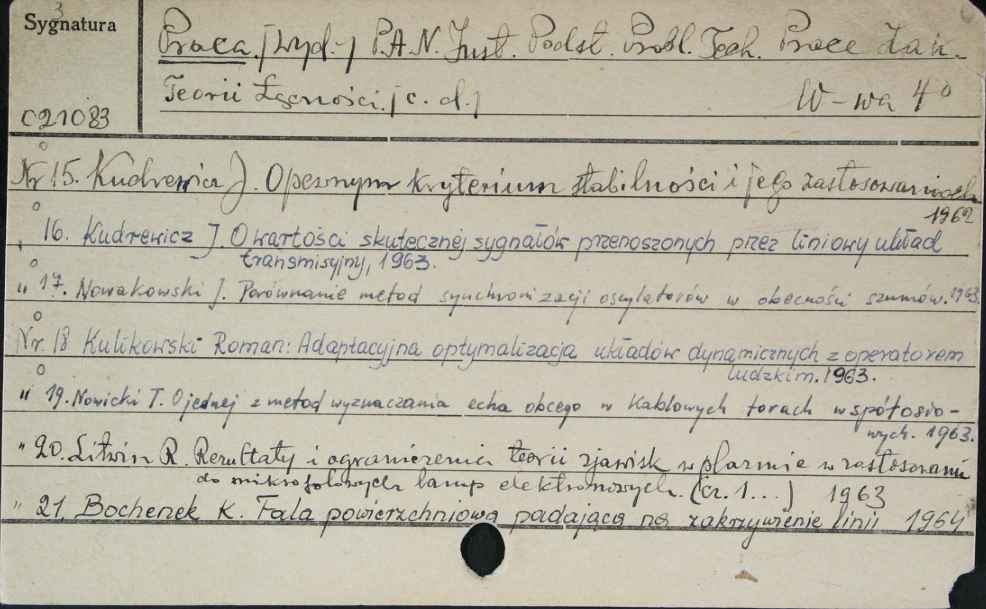 3
Sygnatura
Praca. [wyd.] P.A.N. Inst. Podst. Probl. Tech. Prace Zak.
Teorii Łączności. [c. d.] W-wa 4°
C21083
Nr 15. Kudrewicz J. O pewnym kryterium stabilności i jego zastosowaniach
1962
" 16. Kudrewicz J. O wartości skutecznej sygnałów przenoszonych przez liniowy układ
transmisyjny, 1963.
" 17. Nowakowski J. Porównanie metod synchronizacji oscylatorów w obecności szumów. 1963.
Nr. 18 Kulikowski Roman: Adaptacyjna optymalizacja układów dynamicznych z operatorem
ludzkim. 1963.
" 19. Nowicki T. O jednej z metod wyznaczania echa obcego w kablowych torach współosio-
wych. 1963.
" 20. Litwin R. Rezultaty i ograniczenia teorii zjawisk w plazmie w zastosowaniu
do mikrofalowych lamp elektronowych. (cz. 1...) 1963
" 21. Bochenek K. Fala powierzchniowa padająca na zakrzywienie linii 1964